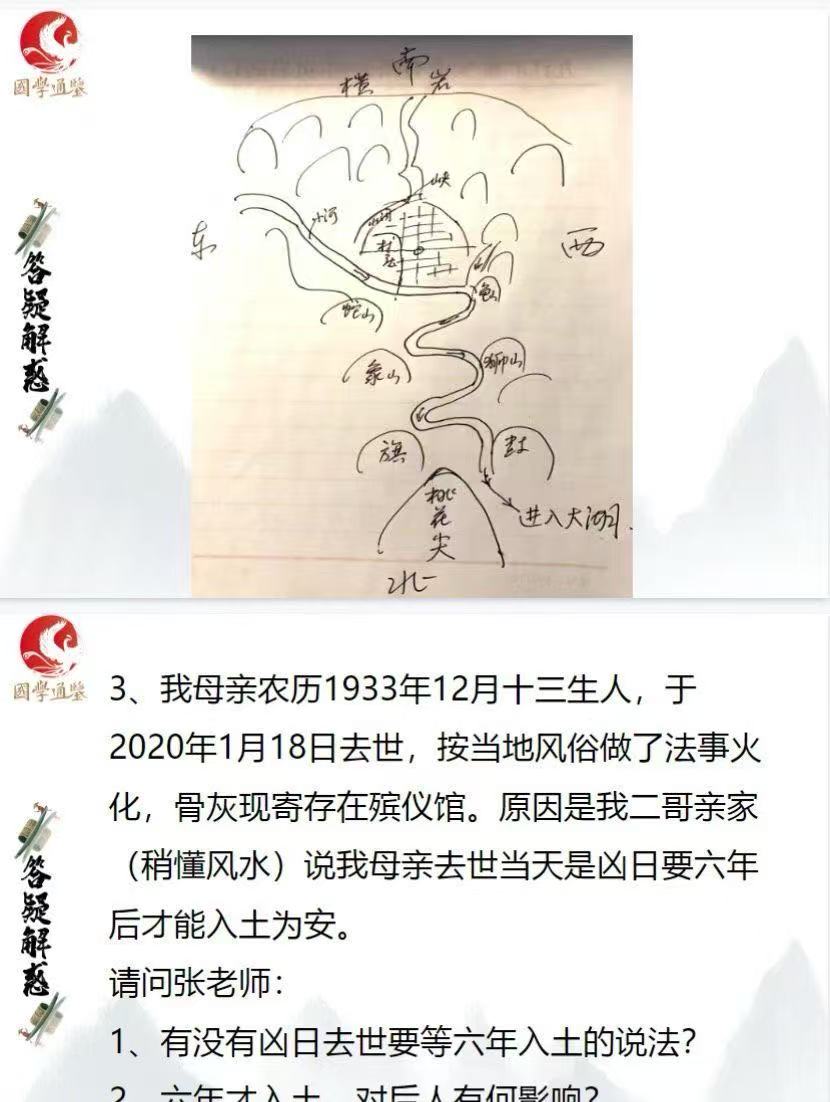 國學通鑒
答疑解惑
南
横岩
峡
小河
东
西
村
蛇山
龟山
象山
狮山
旗
鼓
桃花尖
进入大湖.
北
國學通鑒
答疑解惑
3、我母亲农历1933年12月十三生人，于
2020年1月18日去世，按当地风俗做了法事火
化，骨灰现寄存在殡仪馆。原因是我二哥亲家
（稍懂风水）说我母亲去世当天是凶日要六年
后才能入土为安。
请问张老师：
1、有没有凶日去世要等六年入土的说法？
2、六年才入土，对后人有何影响？